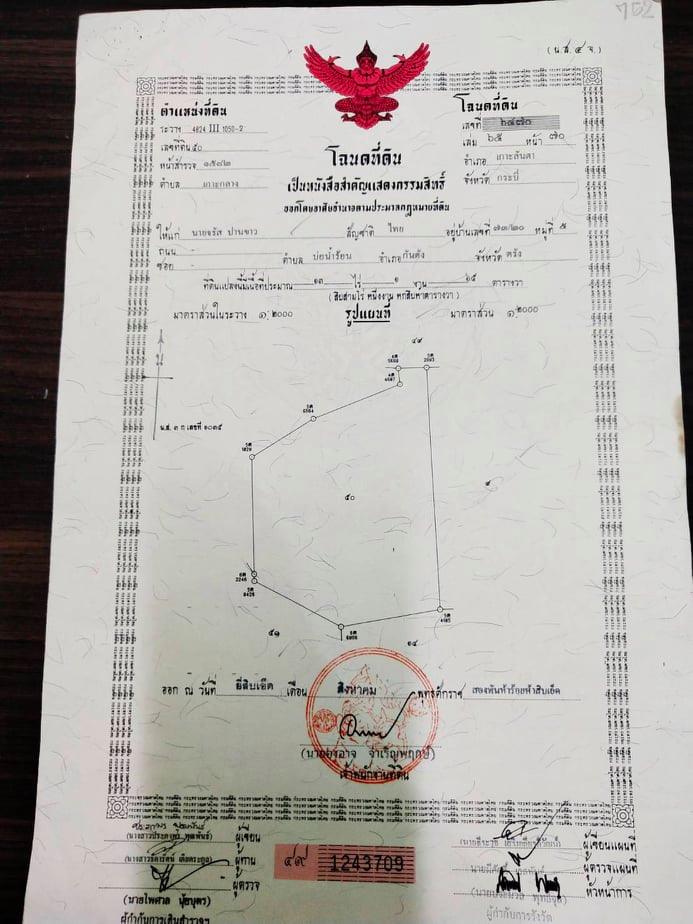 752
(น.ส. ๔ จ.)
ตำแหน่งที่ดิน
ระวาง 4824 III 1050-2
เลขที่ดิน ๕๐
หน้าสำรวจ ๑๕๔๒
ตำบล เกาะกลาง
โฉนดที่ดิน
เลขที่ ๖๔๗๐
เล่ม ๖๕ หน้า ๗๐
อำเภอ เกาะลันตา
จังหวัด กระบี่
โฉนดที่ดิน
เป็นหนังสือสำคัญแสดงกรรมสิทธิ์
ออกโดยอาศัยอำนาจตามประมวลกฎหมายที่ดิน
ให้แก่ นายจรัส ปานขาว สัญชาติ ไทย อยู่บ้านเลขที่ ๗๓/๒๐ หมู่ที่ ๕
ถนน -
ซอย - ตำบล บ่อน้ำร้อน อำเภอ กันตัง จังหวัด ตรัง
ที่ดินแปลงนี้มีเนื้อที่ประมาณ ๑๓ ไร่ ๑ งาน ๖๕ ตารางวา
( สิบสามไร่ หนึ่งงาน หกสิบห้าตารางวา )
มาตราส่วนในระวาง ๑:๒๐๐๐ รูปแผนที่ มาตราส่วน ๑:๒๐๐๐
๔๙
น.ส. ๓ ก เลขที่ ๑๐๓๕
๕๐
๕๑
๑๔
ออก ณ วันที่ ยี่สิบเอ็ด เดือน สิงหาคม พุทธศักราช สองพันห้าร้อยห้าสิบเอ็ด
จำเริญพฤกษ์)
เจ้าพนักงานที่ดิน
ผู้เขียน
ผู้ทาน
ผู้ตรวจ
(นายไพศาล นุ้ยบุตร)
ผู้กำกับการเดินสำรวจฯ
๔๙ 1243709
ผู้เขียนแผนที่
ผู้ตรวจแผนที่
หัวหน้าการ
ผู้กำกับการรังวัด